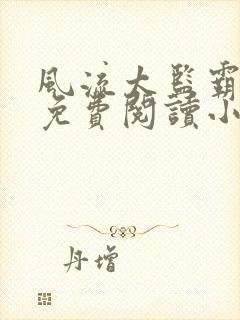 風流大監霸
免費閱讀小
丹增